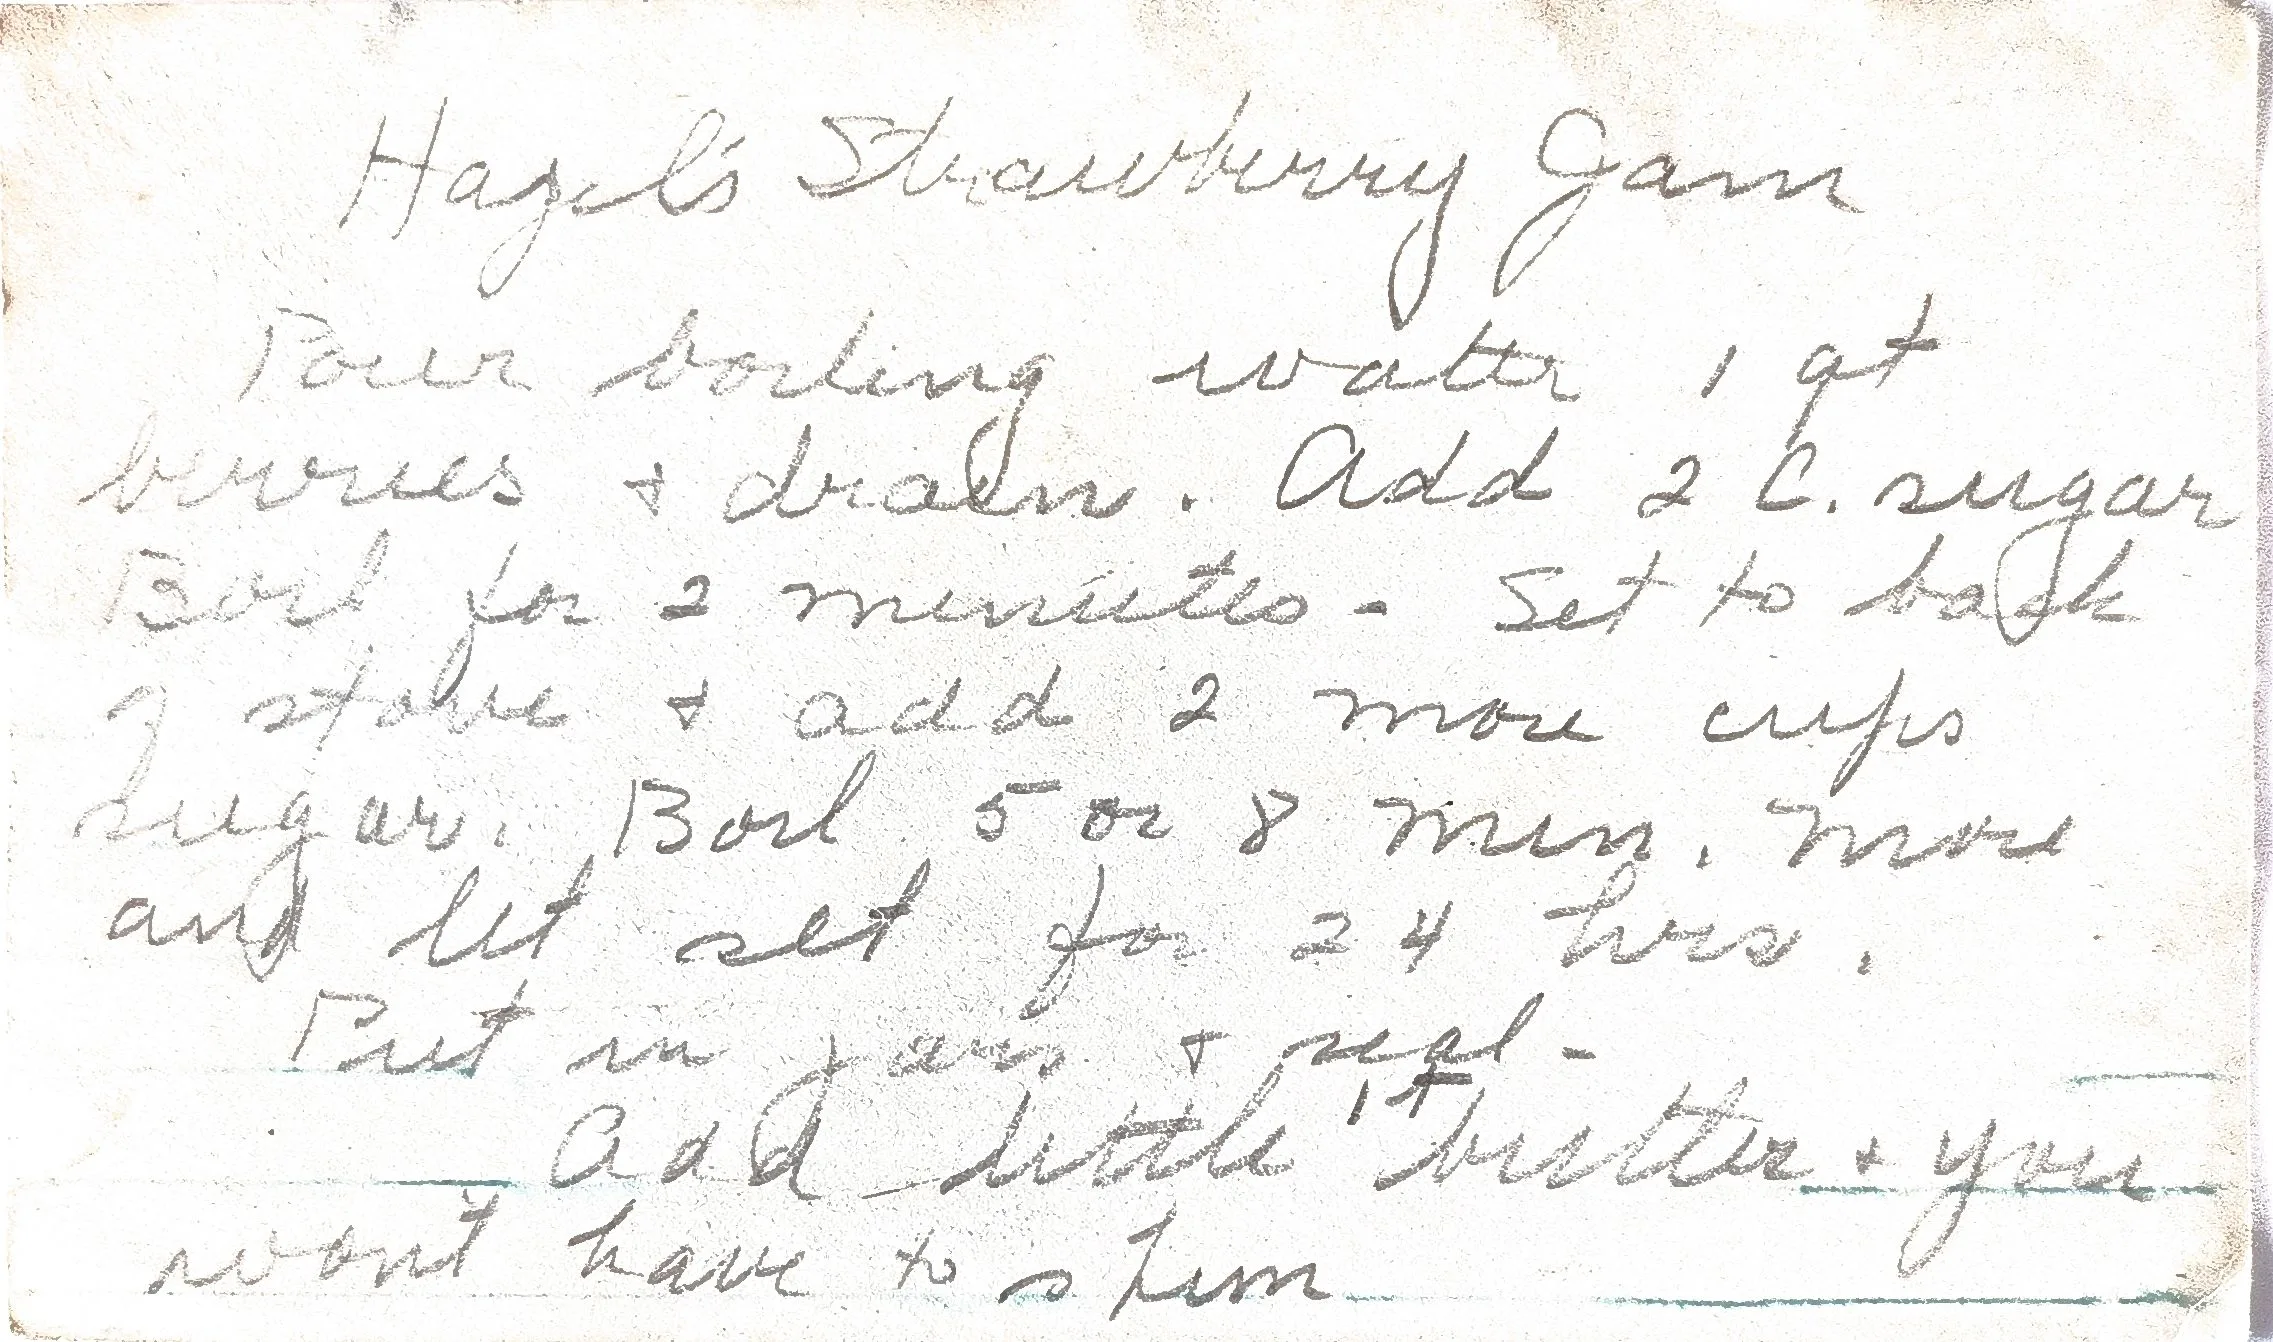 Hazel's Strawberry Jam
Pour boiling water 1 qt
berries + drain. Add 2 C. sugar
Boil for 2 minutes - Set to back
of stove + add 2 more cups
sugar. Boil 5 or 8 min. more
and let set for 24 hrs.
Put in jars + seal -
Add little butter + you
won't have to skim